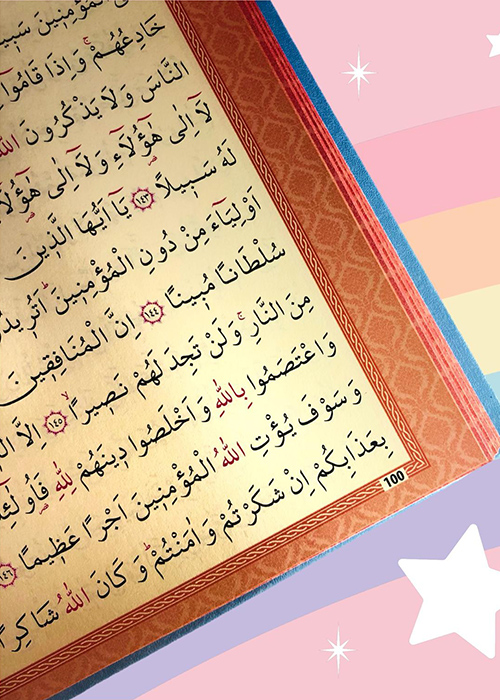 الْمُؤْمِنِينَ
خَادِعُهُمْۚ وَاِذَا قَامُٓوا
النَّاسَ وَلَا يَذْكُرُونَ اللّٰهَ
لَٓا اِلٰى هٰٓؤُ۬لَٓاءِ وَلَٓا اِلٰى هٰٓؤُ۬لَٓاءِ
لَهُ سَبِيلًا ﴿١٤٣﴾ يَٓا اَيُّهَا الَّذِينَ
اَوْلِيَٓاءَ مِنْ دُونِ الْمُؤْمِنِينَۜ
سُلْطَانًا مُبِينًا ﴿١٤٤﴾ اِنَّ الْمُنَافِقِينَ
مِنَ النَّارِۚ وَلَنْ تَجِدَ لَهُمْ نَصِيرًاۙ ﴿١٤٥﴾ اِلَّا
وَاعْتَصَمُوا بِاللّٰهِ وَاَخْلَصُوا دِينَهُمْ لِلّٰهِ
وَسَوْفَ يُؤْتِ اللّٰهُ الْمُؤْمِنِينَ اَجْرًا عَظِيمًا ﴿١٤٦﴾
بِعَذَابِكُمْ اِنْ شَكَرْتُمْ وَاٰمَنْتُمْۜ وَكَانَ اللّٰهُ شَاكِرًا
100